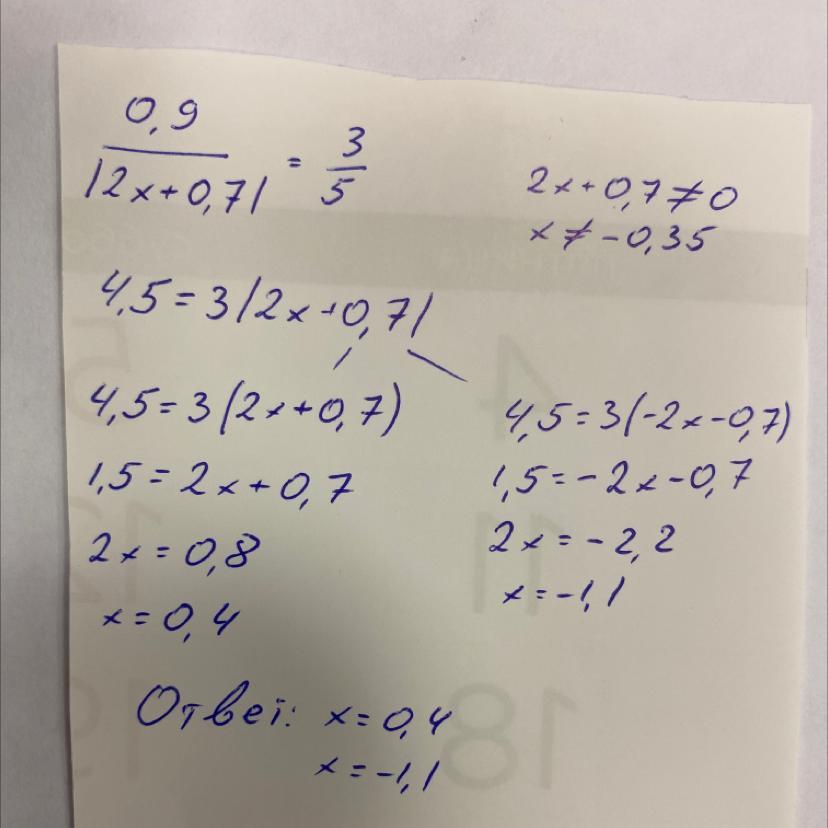 0,9 / |2x+0,7| = 3/5
2x+0,7≠0
x≠-0,35
4,5=3|2x+0,7|
4,5=3(2x+0,7)
1,5=2x+0,7
2x=0,8
x=0,4
4,5=3(-2x-0,7)
1,5=-2x-0,7
2x=-2,2
x=-1,1
Ответ: x=0,4
x=-1,1